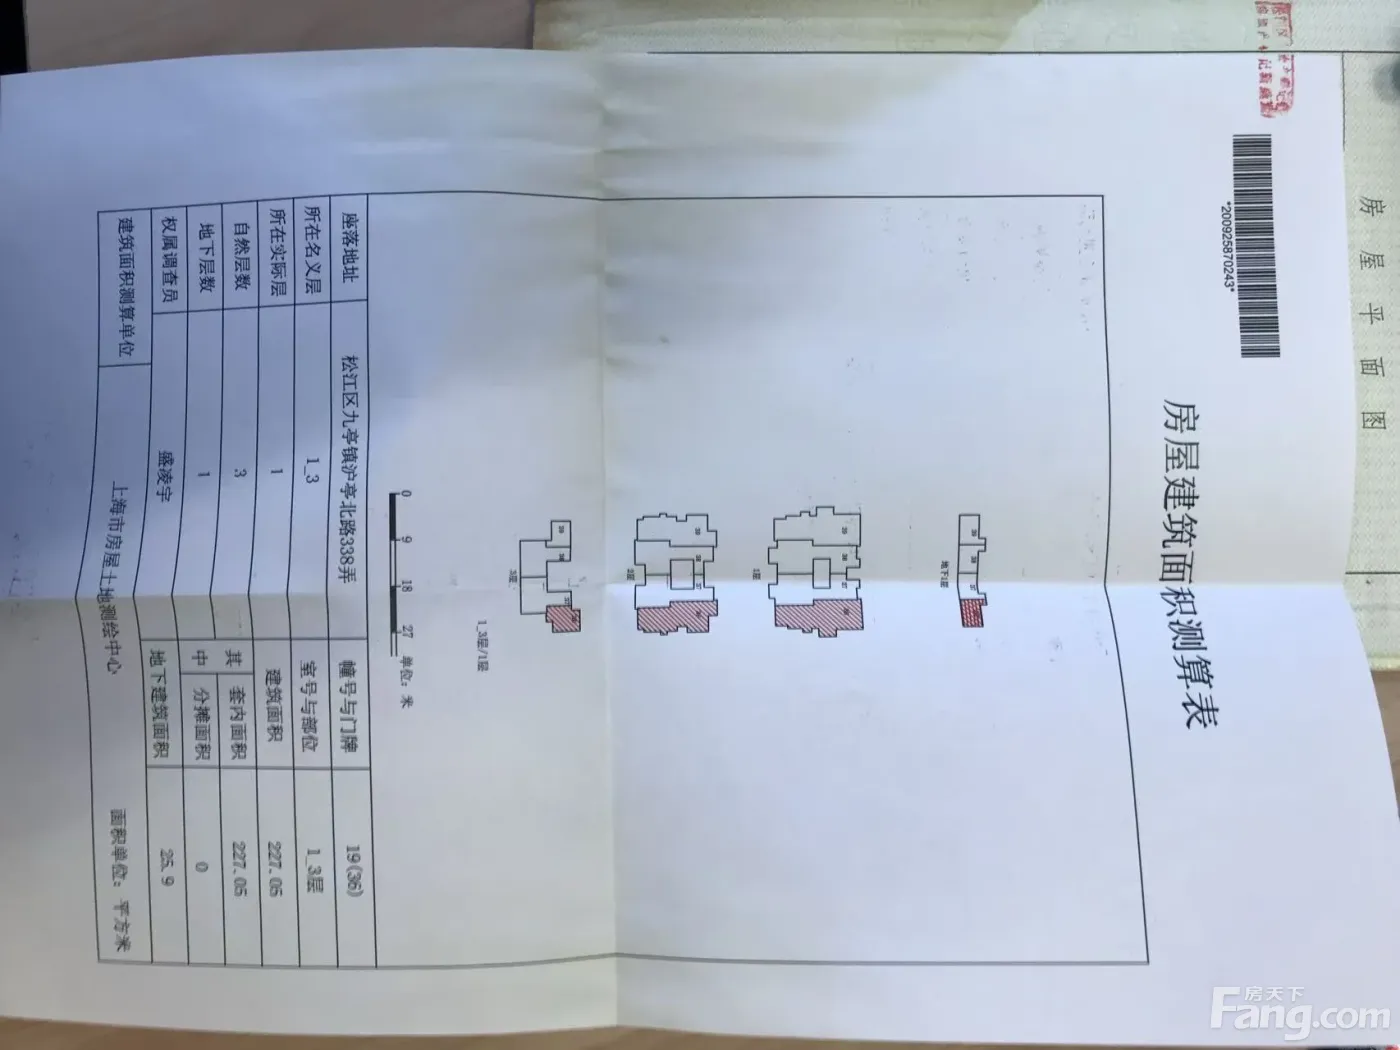 房屋平面图
*200925870243*
房屋建筑面积测算表
39
38
37
地下1层
39
38
37
36
1层
39
38
37
36
2层
39
38
37
36
3层
1_3层/1层
0 9 18 27 单位：米
座落地址 松江区九亭镇沪亭北路338弄 幢号与门牌 19(36)
所在名义层 1_3 室号与部位 1_3层
所在实际层 1 建筑面积 227.05
自然层数 3 其中 套内面积 227.05
地下层数 1 分摊面积 0
权属调查员 盛凌宇 地下建筑面积 25.9
建筑面积测算单位 上海市房屋土地测绘中心 面积单位：平方米
房天下
Fang.com